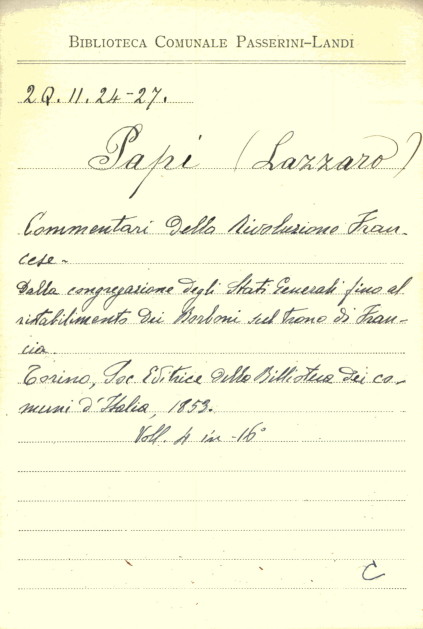 BIBLIOTECA COMUNALE PASSERINI-LANDI
2Q. 11. 24-27.
Papi (Lazzaro)
Commentari della Rivoluzione Fran-
cese-
Dalla congregazione degli Stati Generali fino al
ristabilimento dei Borboni sul trono di Fran-
cia.
Torino, Soc. Editrice della Biblioteca dei co-
muni d'Italia, 1853.
Voll. 4 in -16°
C